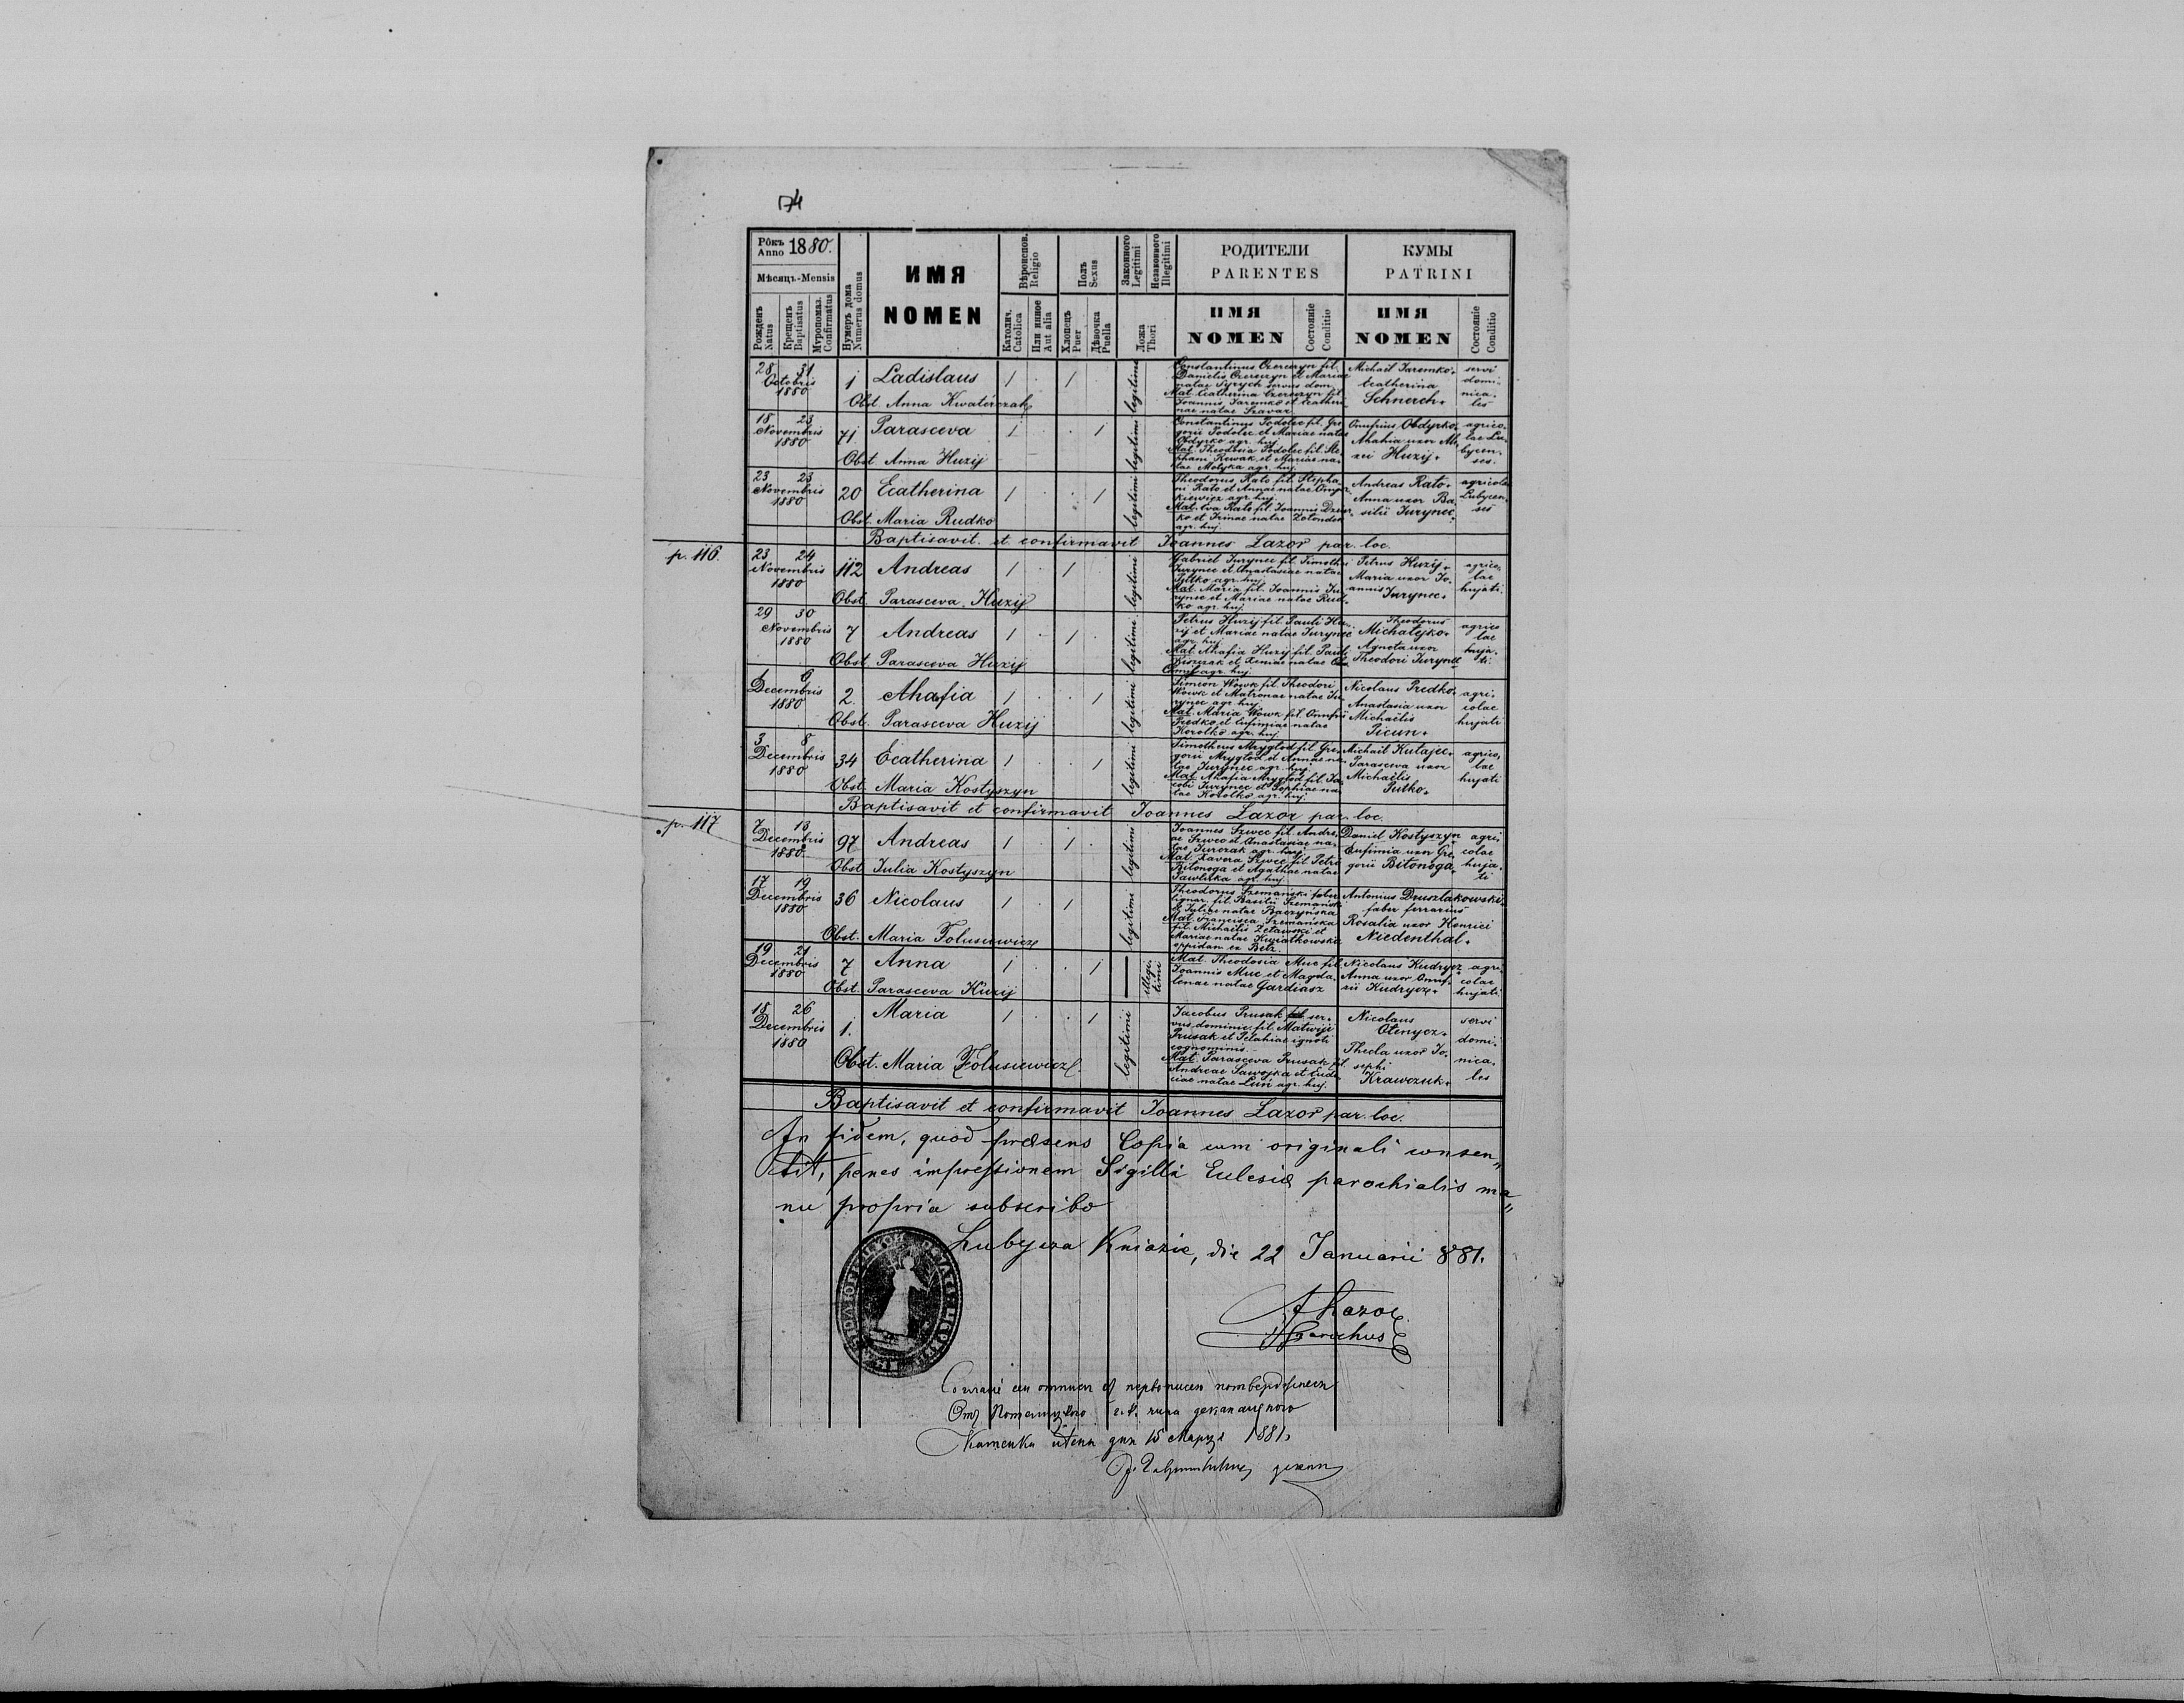 74
Рôкъ Anno 1880.
Мѣсяцъ-Mensis
Рожденъ Natus
Крещенъ Baptisatus
Мѵропомаз. Confirmatus
Нумеръ дома Numerus domus
ИМЯ
NOMEN
Вѣроиспов. Religio
Католич. Catolica
Или инное Aut alia
Полъ Sexus
Хлопець Puer
Дѣвочка Puella
Законного Legitimi
Незаконного Illegitimi
Ложа Thori
РОДИТЕЛИ
PARENTES
ИМЯ
NOMEN
Состоянїе Conditio
КУМЫ
PATRINI
ИМЯ
NOMEN
Состоянїе Conditio
28 31
Octobris
1880
1 Ladislaus 1 . 1 .
Obst. Anna Kwatérczak
legitimi
Constantinus Czerczyn fil.
Danielis Czerczyn et Mariae
natae Syrych servus dom.
Mat. Ecatherina Czerczyn fil.
Joannis Jaremko et Ecatheri-
nae natae Szavar
Michaël Jaremko.
Ecatherina
Schnerch.
servi
domi-
nica-
les
18 23
Novembris
1880
71. Parasceva 1 . . 1
Obst. Anna Huzij
legitimi
Constantinus Podolec fil. Gre-
gorii Podolec et Mariae natae
Obdyrko agr. huj.
Mat. Theodosia Podolec fil. Ste-
phani Kowak et Mariae na-
tae Motyka agr. huj.
Onufrius Obdyrko.
Ahahia uxor Ale-
xii Huzij.
agrico-
lae Lu-
bycen-
ses.
23 23
Novembris
1880
20 Ecatherina 1 . . 1
Obst. Maria Rudko
legitimi
Theodorus Rato fil. Stepha-
ni Rato et Annae natae Omyr-
kiewicz agr. huj.
Mat. Eva Rato fil. Joannis
ko et Irinae natae
agr. huj.
Andreas Rato.
Anna uxor Ba-
silii Jurynec.
agricolae
Lubycen-
ses
Baptisavit et confirmavit Joannes Lazor par. loc.
p. 116.
23 24
Novembris
1880
112 Andreas 1 . 1
Obst. Parasceva Huzij
legitimi
Gabriel Jurynec fil. Timothei
Jurynec et Anastasiae natae
Pytko agr. huj.
Mat. Maria fil. Joannis Ju-
rynec et Mariae natae Rud-
ko agr. huj.
Petrus Huzij.
Maria uxor Jo-
annis Jurynec.
agrico-
lae
hujati.
29 30
Novembris
1880
7 Andreas 1 . 1 .
Obst. Parasceva Huzij
legitimi
Petrus Huzij fil. Pauli Hu-
zij et Mariae natae Jurynec
agr. huj.
Mat. Ahafia Huzij fil. Pauli
et Xeniae natae
agr. huj.
Theodorus
Michatejko.
Agneta uxor
Theodori Jurynec
agrico
lae
huja-
ti.
1 6
Decembris
1880
2. Ahafia 1 . . 1
Obst. Parasceva Huzij
legitimi
Simeon Wowk fil. Theodori
Wowk et Matronae natae Ju-
rynec agr. huj.
Mat. Maria Wowk fil. Onufrii
Predko et Eufimiae natae
Korotko agr. huj.
Nicolaus Predko.
Anastasia uxor
Michaëlis
Picun.
agri-
colae
hujati
3 8
Decembris
1880
34 Ecatherina 1 . . 1
Obst. Maria Kostyszyn
legitimi
Timotheus Mryglod fil. Gre-
gorii Mryglod et Annae na-
tae Jurynec agr. huj.
Mat. Ahafia Mryglod fil. Ja-
cobi Jurynec et Sophiae na-
tae Korotko agr. huj.
Michaël Kutajec.
Parasceva uxor
Michaëlis
Putko.
agrico-
lae
hujati
Baptisavit et confirmavit Joannes Lazor par. loc.
p. 117
7 13
Decembris
1880.
97 Andreas 1 . 1 .
Obst. Julia Kostyszyn
legitimi
Joannes Szwec fil. Andre-
ae Szwec et Anastasiae na-
tae Jurczak agr. huj.
Mat. Xavera Szwec fil. Petri
Bitonoga et Agathae natae
Pawliska agr. huj.
Daniel Kostyszyn
Eufimia uxor Gre-
gorii Bitonoga.
agri-
colae
huja-
ti
17 19
Decembris
1880
36 Nicolaus 1 . 1
Obst. Maria Tolusiewicz
legitimi
Theodorus Szemański faber
lignar. fil. Basilii Szemański
et Juliae natae Baczyńska
Mat. Francisca Szemańska
fil. Michaëlis Zetawski et
Mariae natae Kwiatkowska
oppidan. ex Betz.
Antonius Druszlakowski.
faber ferrarius
Rosalia uxor Henrici
Niedenthal.
19 21
Decembris
1880
7 Anna 1 . . 1
Obst. Parasceva Huzij
illegi-
timi
Mat. Theodosia Muc fil.
Joannis Muc et Magda-
lenae natae Gardiasz
Nicolaus Kudrycz
Anna uxor Onuf-
rii Kudrycz.
agri-
colae
hujati
18 26
Decembris
1880
1. Maria 1 . . 1
Obst. Maria Tolusiewicz.
legitimi
Jacobus Prusak ser-
vus dominic. fil. Matwiji
Prusak et Pelahiae ignoti
cognominis.
Mat. Parasceva Prusak fil.
Andreae Sawojka et Eudo-
ciae natae Luń agr. huj.
Nicolaus
Otenycz.
Thecla uxor Jo-
sephi
Krawczuk.
servi
domi-
nica-
les
Baptisavit et confirmavit Joannes Lazor par. loc.
In fidem, quod præsens Copia cum originali consen„
tit, penes impressionem Sigilli Eclesiæ parochialis ma„
nu propria subscribo
Lubycza Kniazie, die 22 Januarii 881.
Lazor
Parochus
1881